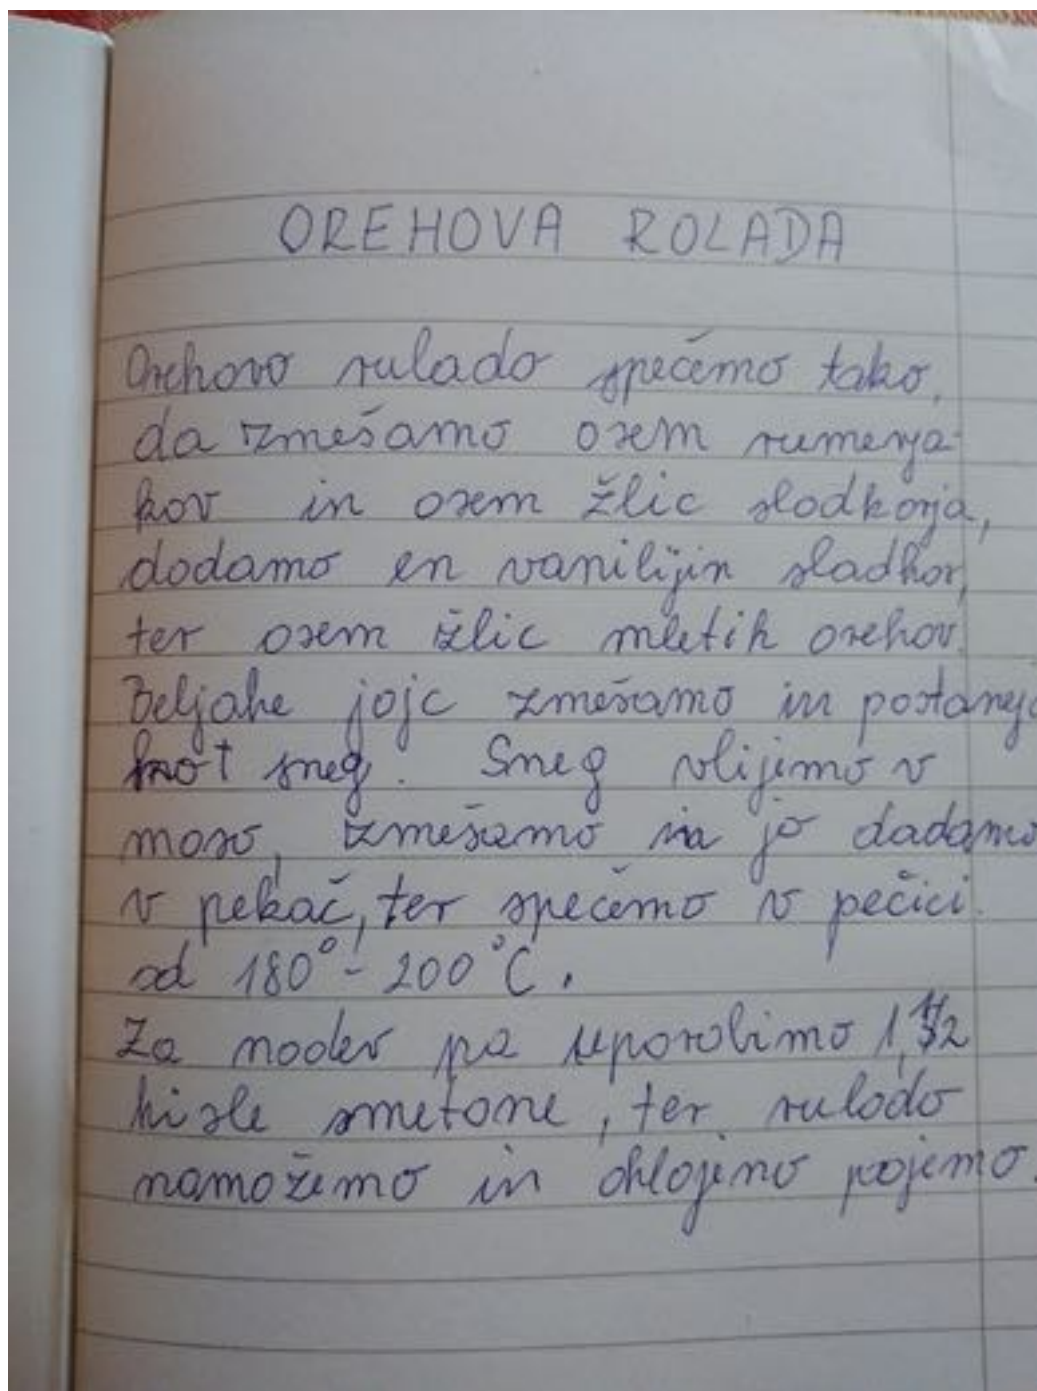 OREHOVA ROLADA
Orehovo rulado spečemo tako,
da zmešamo osem rumenja-
kov in osem žlic sladkorja,
dodamo en vanilijin sladkor,
ter osem žlic mletih orehov.
Beljake jajc zmešamo in postanejo
kot sneg. Sneg vlijemo v
maso, zmešamo in jo dadamo
v pekač, ter spečemo v pečici
od 180° - 200°C.
Za nadev pa uporabimo
kisle smetane, ter rulado
namažemo in ohlajeno pojemo.